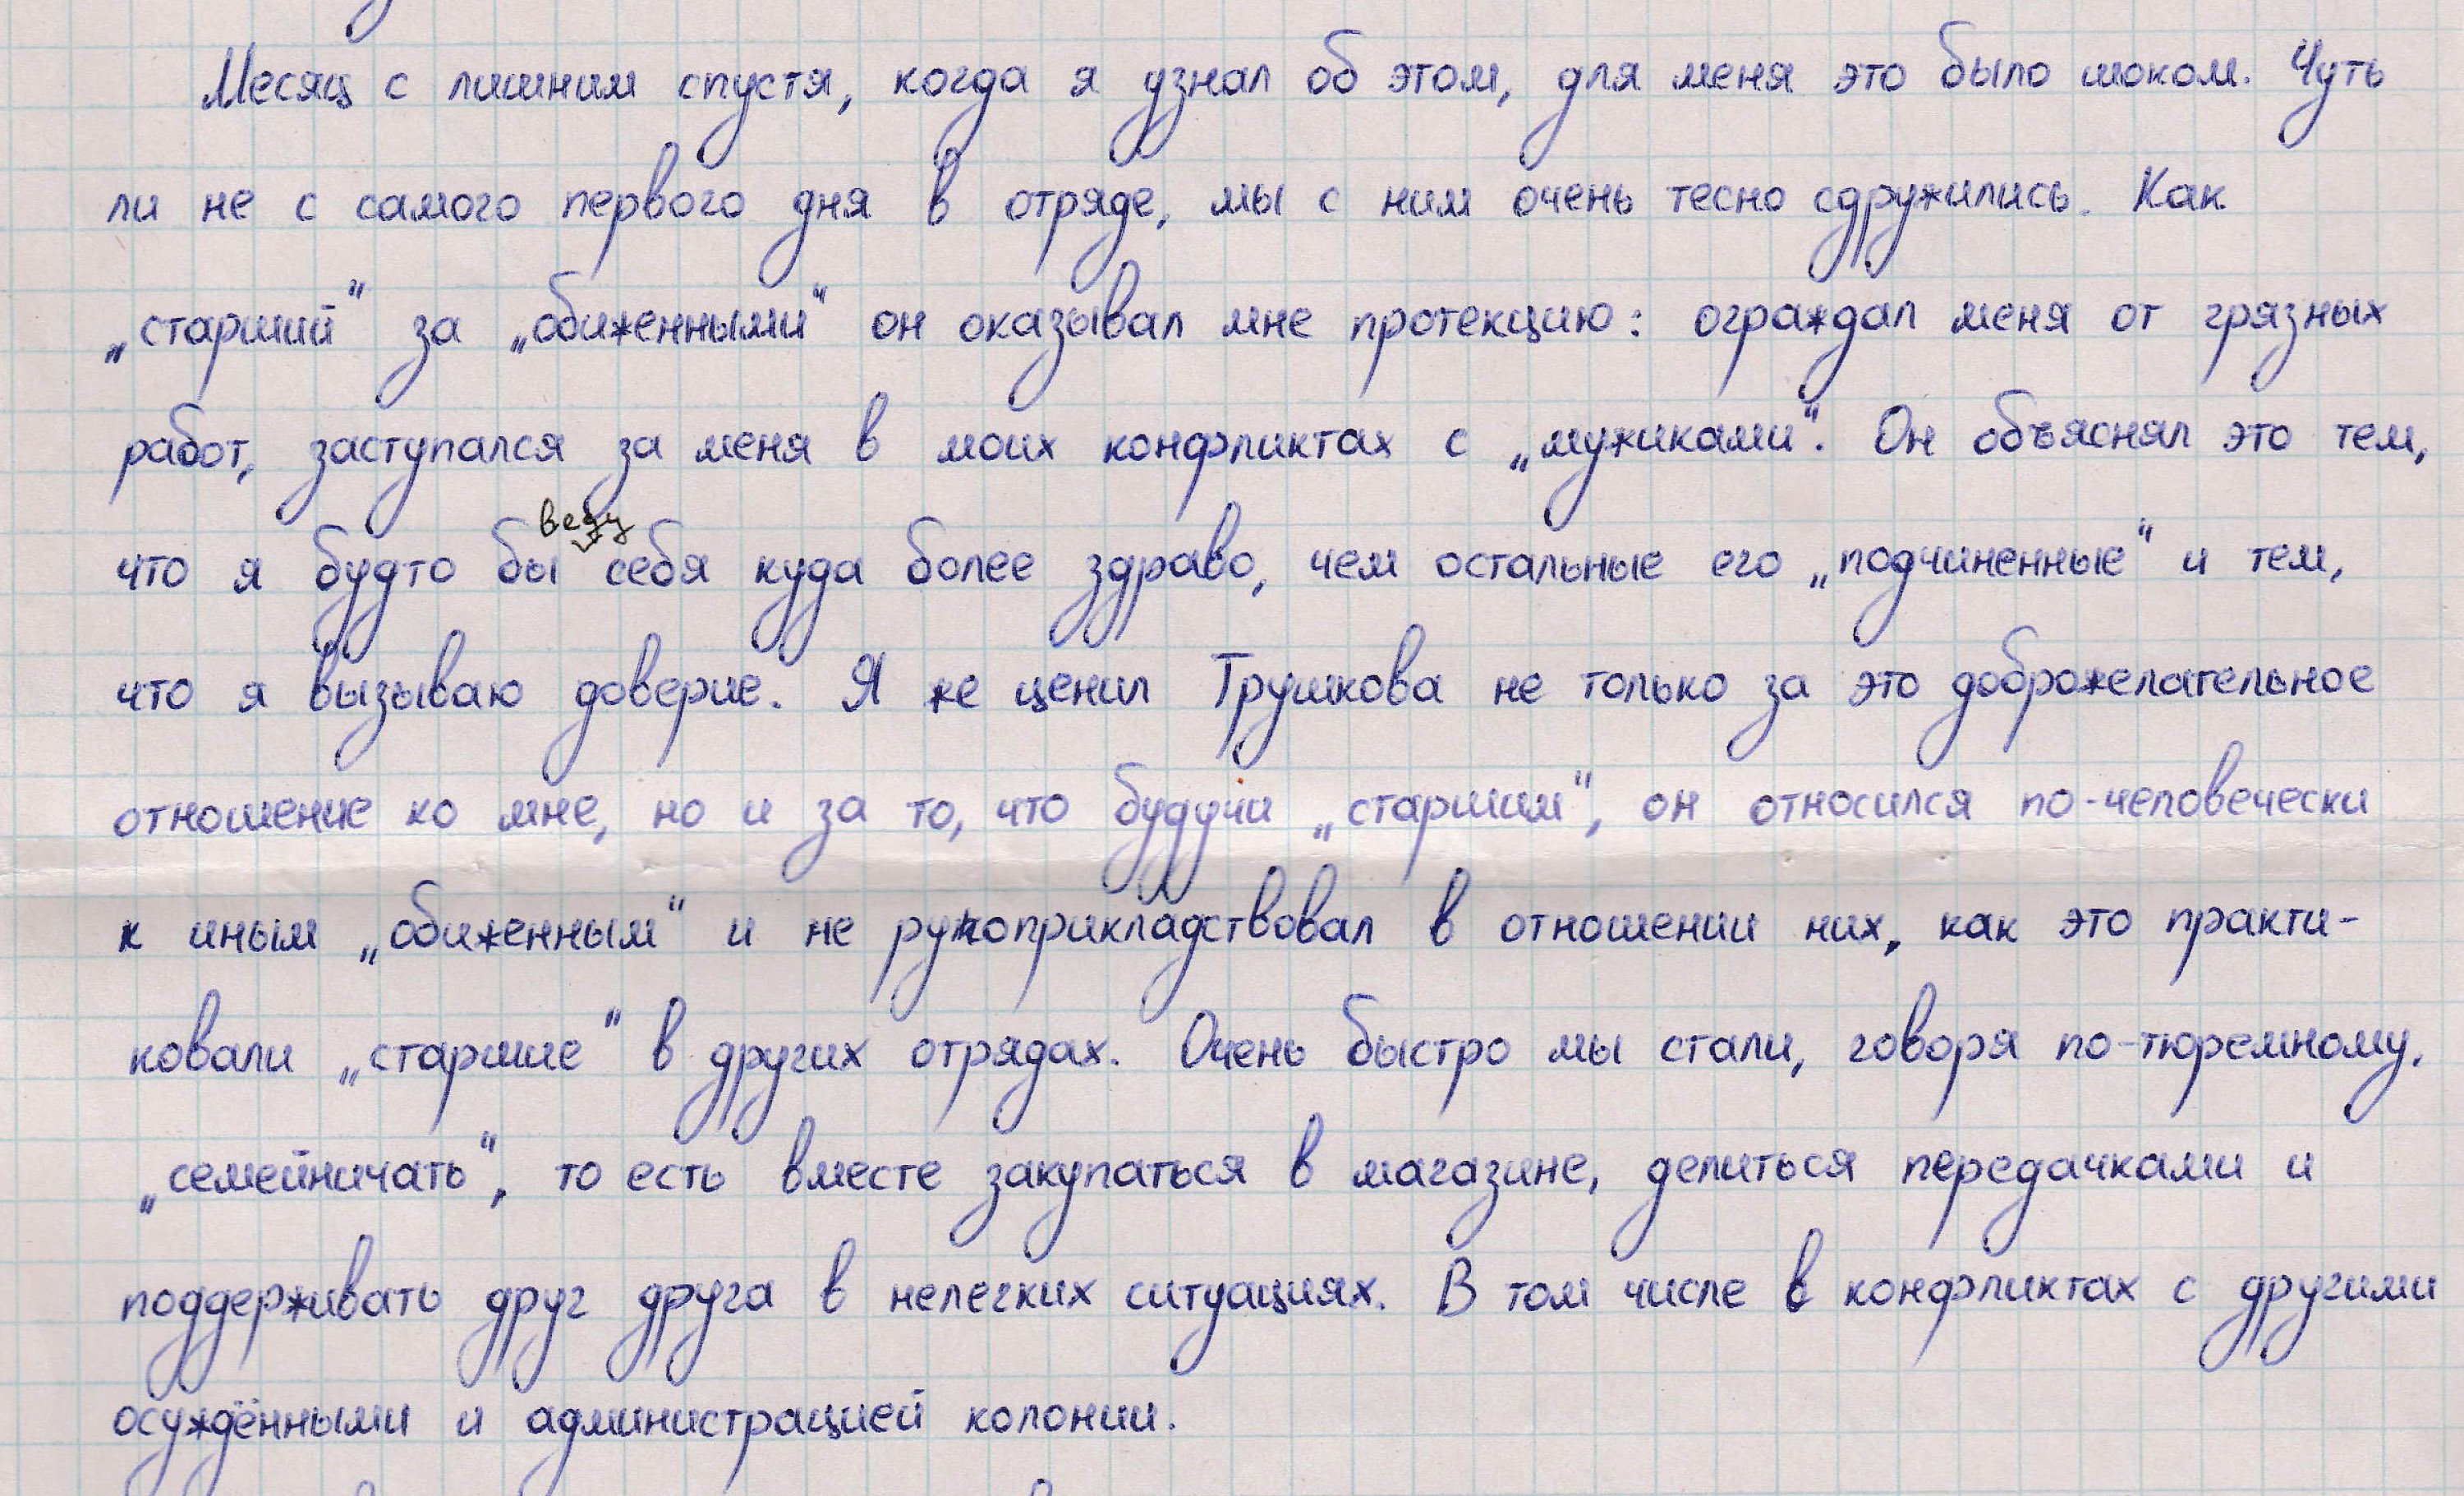 Месяц с лишним спустя, когда я узнал об этом, для меня это было шоком. Чуть
ли не с самого первого дня в отряде, мы с ним очень тесно сдружились. Как
„старший“ за „обиженными“ он оказывал мне протекцию: ограждал меня от грязных
работ, заступался за меня в моих конфликтах с „мужиками“. Он объяснял это тем,
веду
что я будто бы себя куда более здраво, чем остальные его „подчиненные“ и тем,
что я вызываю доверие. Я же ценил Трушкова не только за это доброжелательное
отношение ко мне, но и за то, что будучи „старшим“, он относился по-человечески
к иным „обиженным“ и не рукоприкладствовал в отношении них, как это практи-
ковали „старшие“ в других отрядах. Очень быстро мы стали, говоря по-тюремному,
„семейничать“, то есть вместе закупаться в магазине, делиться передачками и
поддерживать друг друга в нелегких ситуациях. В том числе в конфликтах с другими
осуждёнными и администрацией колонии.